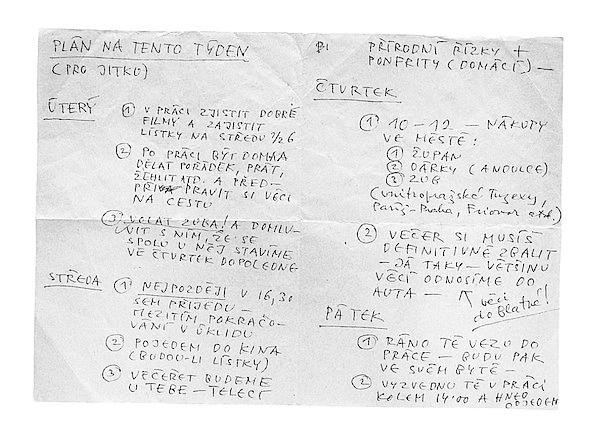 PLÁN NA TENTO TÝDEN
(PRO JITKU)
ÚTERÝ
① V PRÁCI ZJISTIT DOBRÉ
FILMY A ZAJISTIT
LÍSTKY NA STŘEDU ½ 6
② PO PRÁCI BÝT DOMA A
DĚLAT POŘÁDEK, PRÁT,
ŽEHLIT ATD. A PŘED-
PRAVIT SI VĚCI
NA CESTU
③ VOLAT ZUBA! A DOMLU-
VIT S NÍM, ŽE SE
SPOLU U NĚJ STAVÍME
VE ČTVRTEK DOPOLEDNE
STŘEDA
① NEJPOZDĚJI V 16,30
SEM PŘIJEDU –
MEZITÍM POKRAČO-
VÁNÍ V ÚKLIDU
② POJEDEM DO KINA
(BUDOU-LI LÍSTKY)
③ VEČEŘET BUDEME
U TEBE – TELECÍ
PŘÍRODNÍ ŘÍZKY +
POMFRITY (DOMÁCÍ) –
ČTVRTEK
① 10 – 12 – NÁKUPY
VE MĚSTĚ:
① ŽUPAN
② DÁRKY (ANDULCE)
③ ZUB
(vnitropražské Tuzexy,
Paříž-Praha, atd.)
② VEČER SI MUSÍŠ
DEFINITIVNĚ ZBALIT
– JÁ TAKY – VĚTŠINU
VĚCÍ ODNOSÍME DO
AUTA –
věci
do Blatné!
PÁTEK
① RÁNO TĚ VEZU DO
PRÁCE – BUDU PAK
VE SVÉM BYTĚ –
② VYZVEDNU TĚ V PRÁCI
KOLEM 14°° A HNED
ODJEDEM